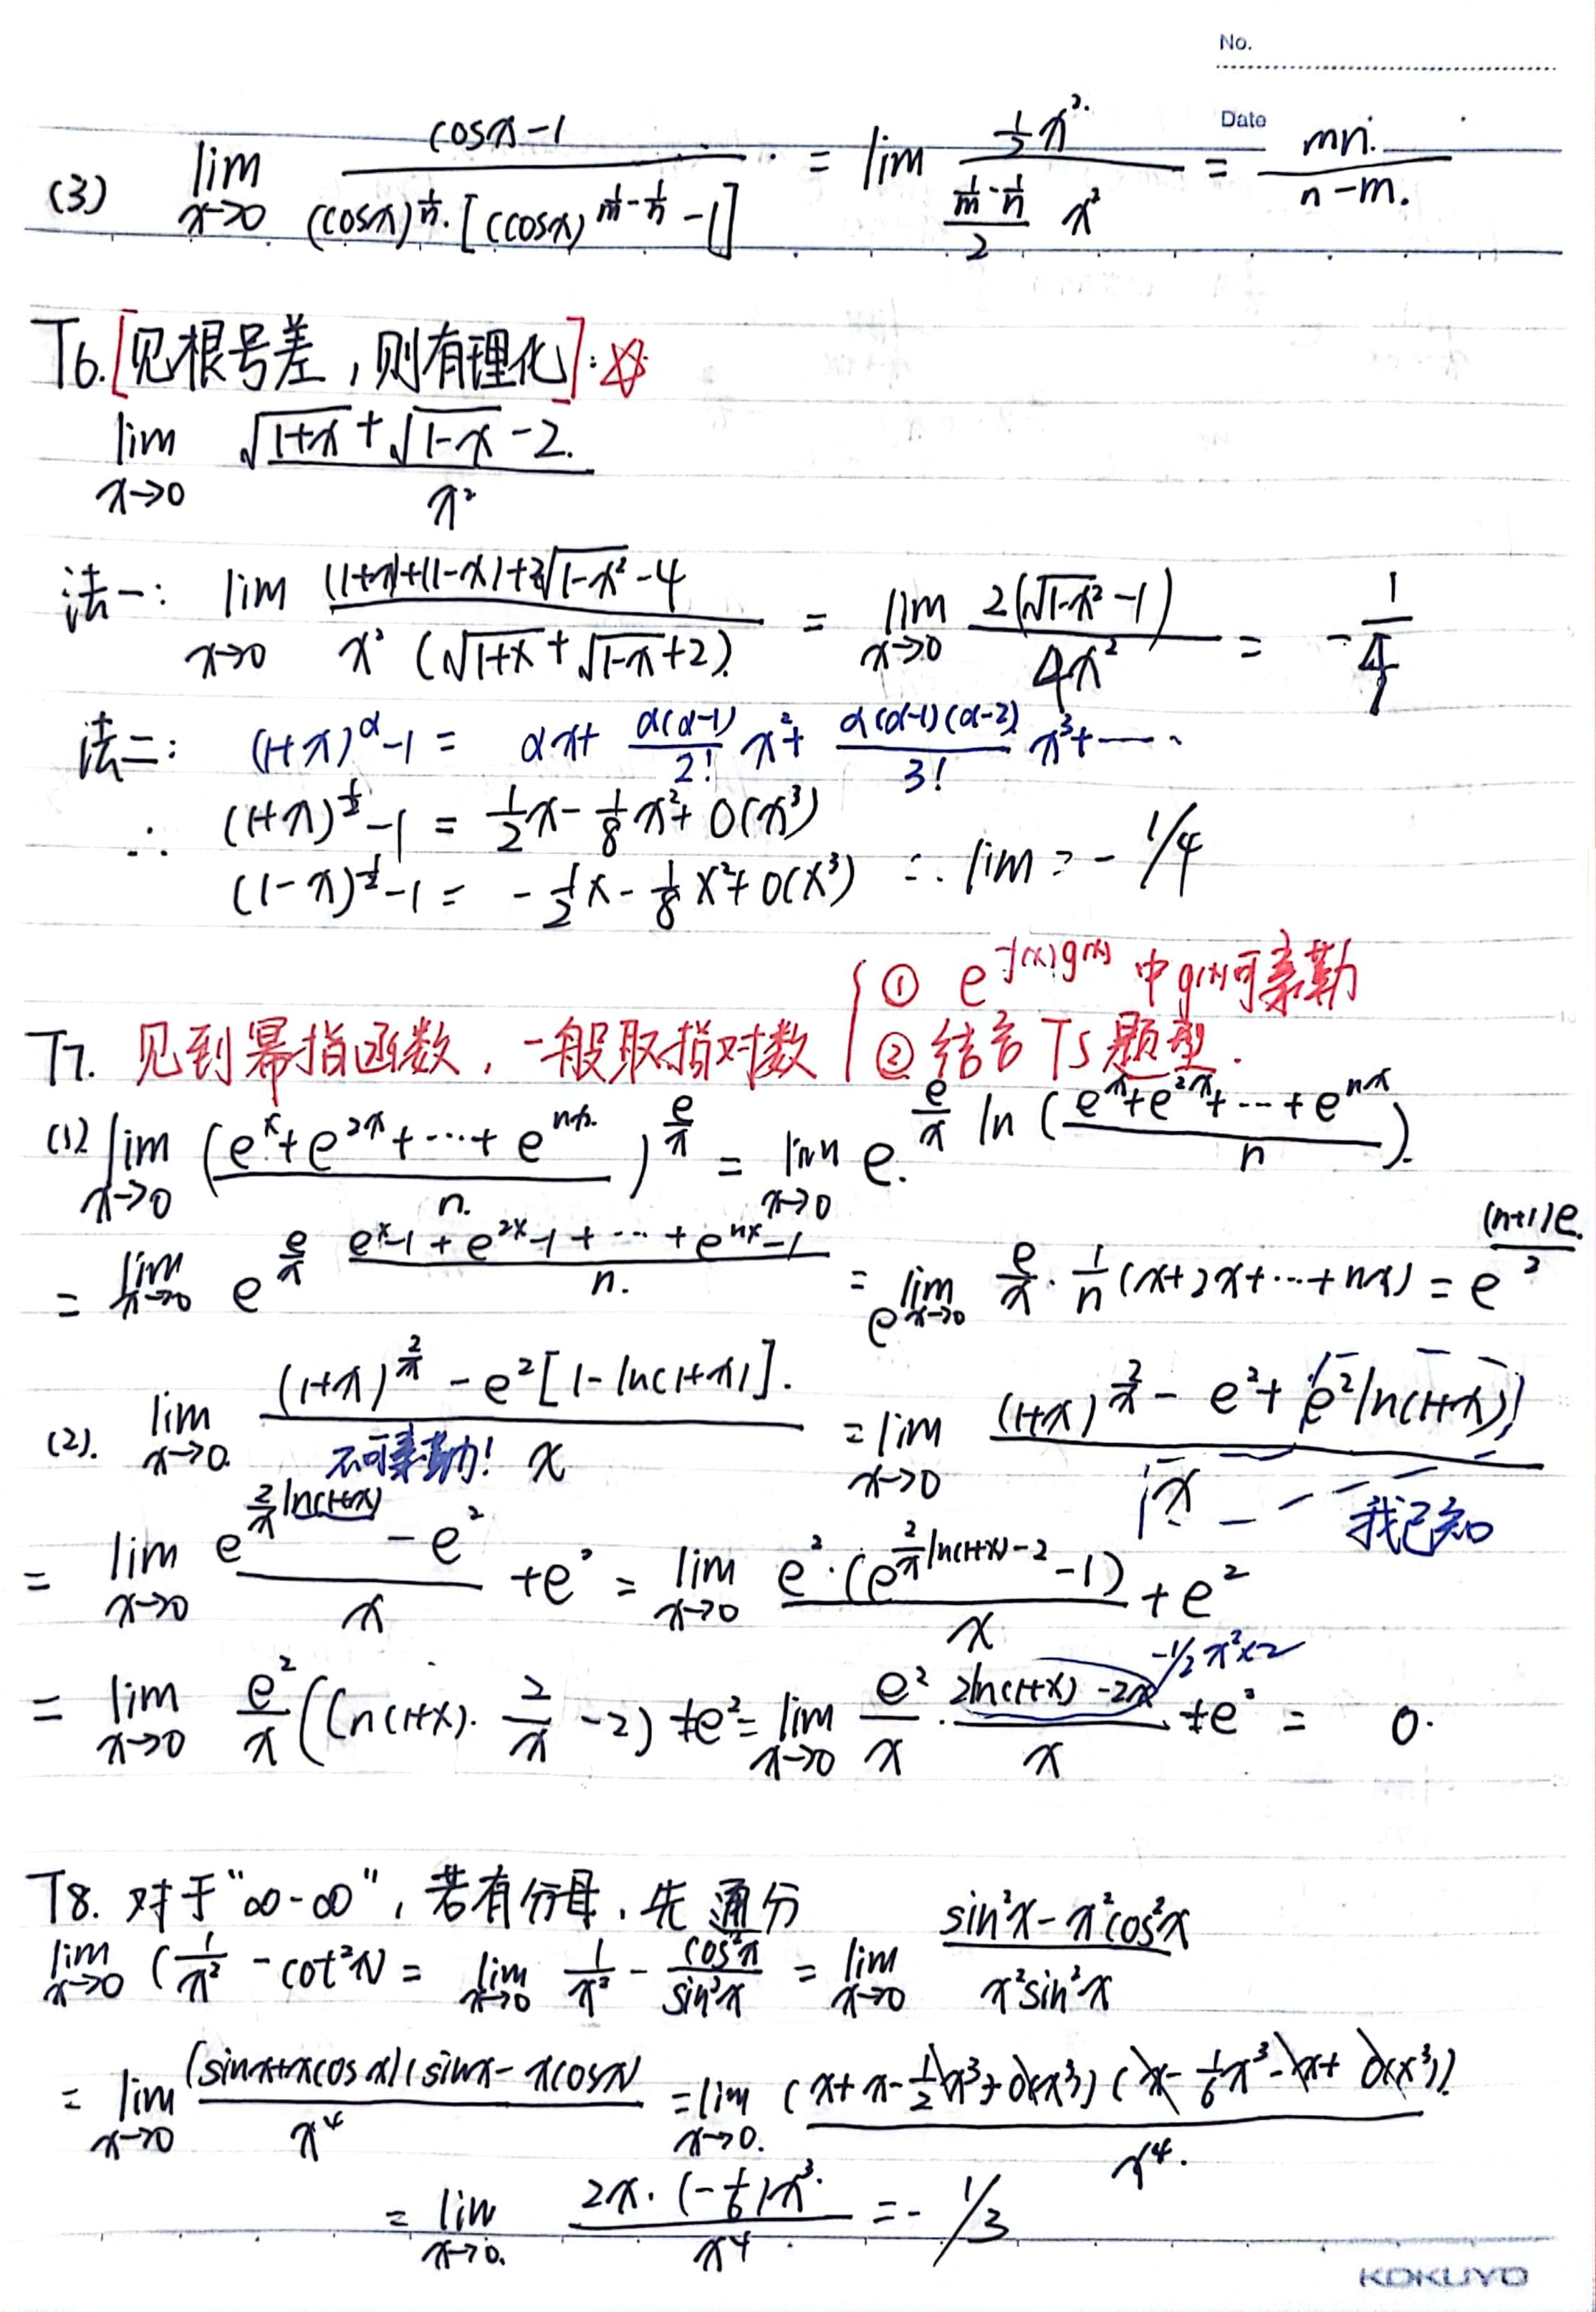 No.
Date
(3) lim x→0 (cosx-1)/((cosx)^(1/n)·[(cosx)^(1/m-1/n)-1]) = lim (1/2 x²)/(((1/m-1/n)/2) x²) = mn/(n-m).
T6.[见根号差,则有理化]:☆
lim x→0 (√(1+x)+√(1-x)-2)/x²
法一: lim x→0 ((1+x)+(1-x)+2√(1-x²)-4)/(x²(√(1+x)+√(1-x)+2)) = lim x→0 2(√(1-x²)-1)/(4x²) = -1/4
法二: (1+x)^α-1 = αx+ α(α-1)/2! x²+ α(α-1)(α-2)/3! x³+······
∴ (1+x)^(1/2)-1 = 1/2 x- 1/8 x²+O(x³)
(1-x)^(1/2)-1 = -1/2 x- 1/8 x²+O(x³) ∴ lim = -1/4
① e^(f(x)g(x)) 中g(x)可泰勒
T7. 见到幂指函数,一般取指对数
② 结合T5题型.
(1) lim x→0 ((e^x+e^(2x)+···+e^(nx))/n)^(e/x) = lim x→0 e^(e/x ln((e^x+e^(2x)+···+e^(nx))/n))
= lim x→0 e^(e/x · (e^x-1+e^(2x)-1+···+e^(nx)-1)/n) = e^(lim x→0 e/x·1/n(x+2x+···+nx)) = e^((n+1)e/2)
(2). lim x→0 ((1+x)^(2/x)-e²[1-ln(1+x)])/x = lim x→0 ((1+x)^(2/x)-e²+e²ln(1+x))/x
不可泰勒!
我已知
= lim x→0 (e^(2/x ln(1+x))-e²)/x +e² = lim x→0 (e²·(e^(2/x ln(1+x)-2)-1))/x +e²
-1/2x²×2
= lim x→0 e²/x (ln(1+x)·2/x-2)+e² = lim x→0 e²/x · (2ln(1+x)-2x)/x +e² = 0.
T8. 对于“∞-∞”,若有分母,先通分
lim x→0 (1/x²-cot²x) = lim x→0 1/x²-cos²x/sin²x = lim x→0 (sin²x-x²cos²x)/(x²sin²x)
= lim x→0 (sinx+xcosx)(sinx-xcosx)/x⁴ = lim x→0 (x+x-1/2x³+o(x³))(x-1/6x³-x+o(x³))/x⁴.
= lim x→0 2x·(-1/6)x³/x⁴ = -1/3
KOKUYO